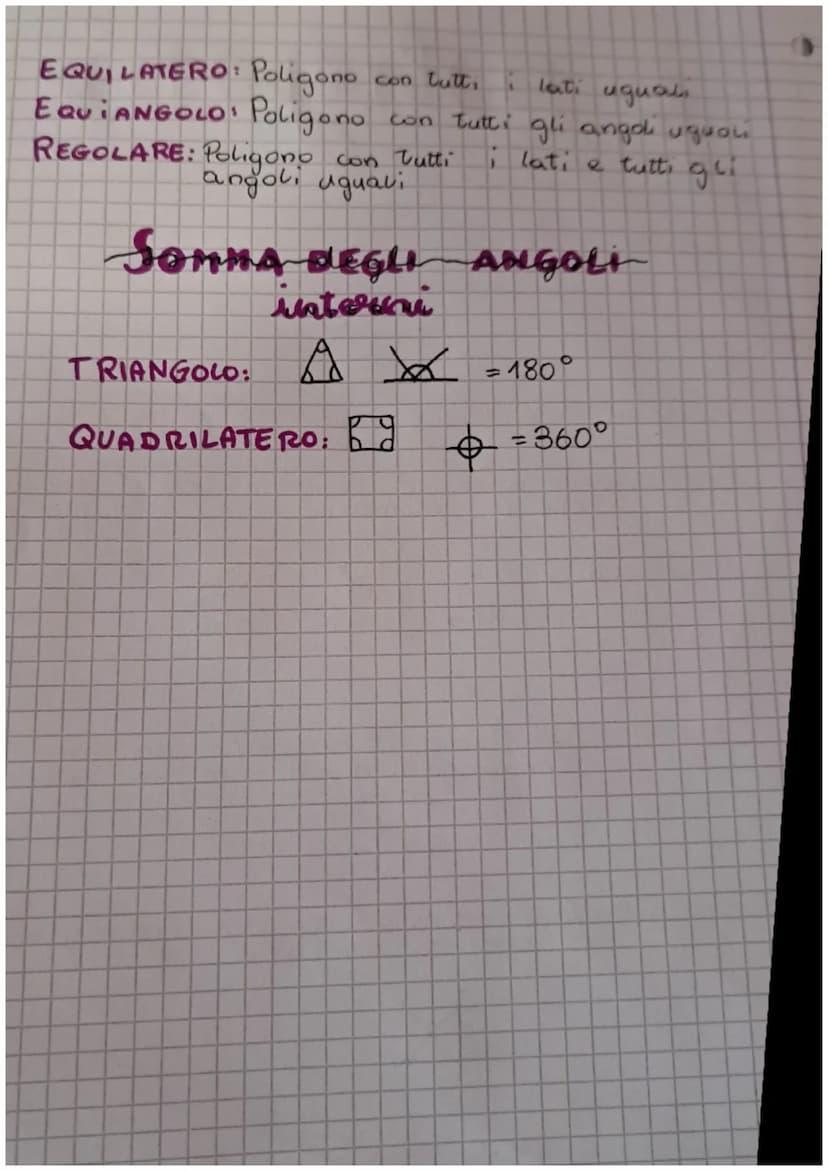 EQUILATERO: Poligono con tutti i lati uguali
EQUiANGOLO: Poligono con tutti gli angoli uguali
REGOLARE: Poligono con tutti i lati e tutti gli
angoli uguali
SOMMA DEGLI ANGOLI
interni
TRIANGOLO: = 180°
QUADRILATERO: = 360°